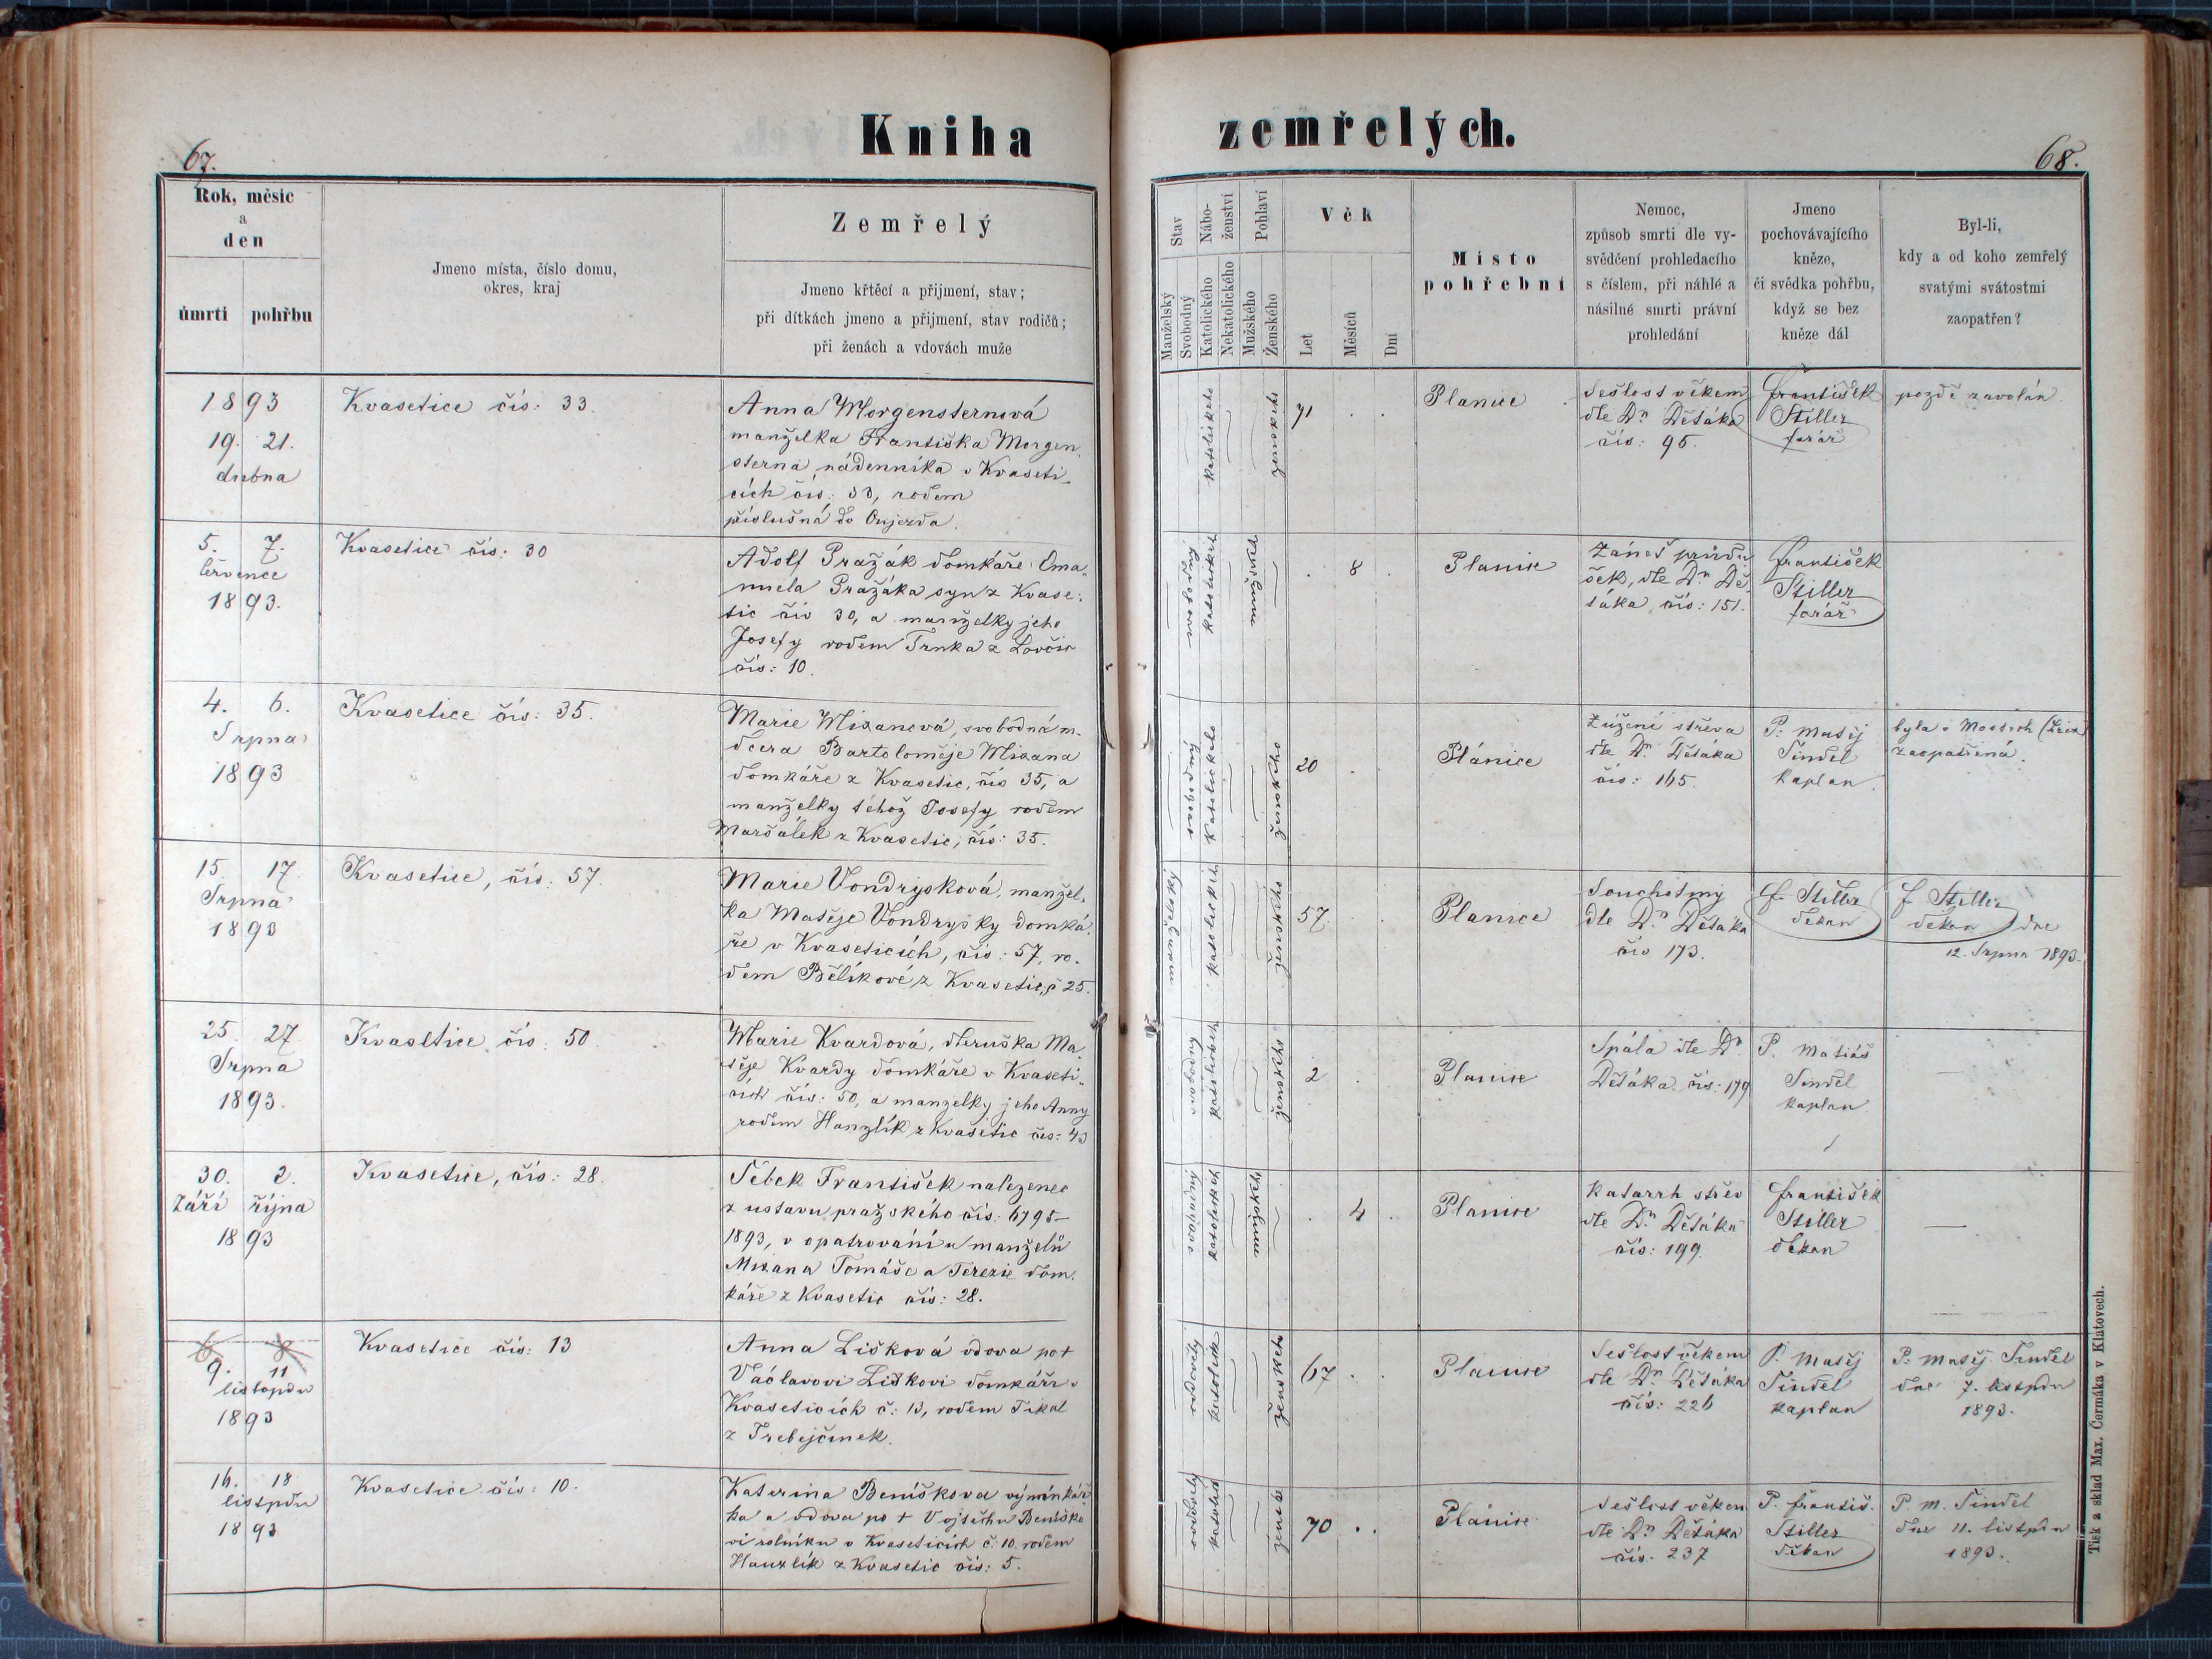 Kniha zemřelých.
67.
68.
Rok, měsíc
a
den
úmrtí pohřbu
Jmeno místa, číslo domu,
okres, kraj
Zemřelý
Jmeno křtěcí a přijmení, stav;
při dítkách jmeno a přijmení, stav rodičů;
při ženách a vdovách muže
Stav
Manželský
Svobodný
Nábo-
ženství
Katolického
Nekatolického
Pohlaví
Mužského
Ženského
Věk
Let
Měsíců
Dní
Místo
pohřební
Nemoc,
způsob smrti dle vy-
svědčení prohledacího
s číslem, při náhlé a
násilné smrti právní
prohledání
Jmeno
pochovávajícího
kněze,
či svědka pohřbu,
když se bez
kněze dál
Byl-li,
kdy a od koho zemřelý
svatými svátostmi
zaopatřen?
1893
19. 21.
dubna
Kvasetice čís: 33.
Anna Morgensternová
manželka Františka Morgen
sterna nádenníka v Kvaseti
cích čís: 33, rodem
příslušná do Oujezda.
katolického
ženského
71
Planice
Sešlost věkem
dle Dr. Děťáka
čís: 95.
František
Stiller
farář
pozdě zavolán
5. 7.
července
1893.
Kvasetice čís: 30
Adolf Pražák domkáře Ema
nuela Pražáka syn z Kvase:
tic čís 30, a manželky jeho
Josefy rodem Trnka z Lovčic
čís: 10.
svobodný
mužského
8
Planice
Zánět průdu
šek, dle Dr. Dě
ťáka, čís: 151.
František
Stiller
farář
4. 6.
Srpna
1893
Kvasetice čís: 35.
Marie Mizanová, svobodná
dcera Bartoloměje Mizana
domkáře z Kvasetic, čís 35, a
manželky téhož Josefy rodem
Maršálek z Kvasetic, čís: 35.
svobodný
katolického
ženského
20
Plánice
Zúžení střeva
dle Dr. Děťáka
čís: 165.
P. Matěj
Šindel
kaplan.
byla v
zaopatřená.
15. 17.
Srpna
1893
Kvasetice, čís: 57.
Marie Vondrysková, manžel
ka Matěje Vondrysky domká
ře v Kvaseticích, čís: 57, ro-
dem Bělíkové z Kvasetic č 25.
manželský
katolického
ženského
57.
Planice
Souchotiny
dle Dr. Děťáka
čís 173.
F. Stiller
děkan
F. Stiller
děkan dne
12. Srpna 1893.
25. 27
Srpna
1893.
Kvasetice čís. 50
Marie Kvardová, dceruška Ma
těje Kvardy domkáře v Kvaseti
cích čís: 50, a manželky jeho Anny
rodem Hanzlík z Kvasetic čís: 43
svobodný
ženského
2
Planice
Spála dle Dr
Děťáka čís: 179
P. Matiáš
Šindel
kaplan
—
30. 2.
Září října
1893
Kvasetice, čís: 28.
Šebek František nalezenec
z ustavu pražského čís: 6795–
1893, v opatrování u manželů
Mizana Tomáše a Terezie dom
káře z Kvasetic čís: 28.
svobodný
mužského
4
Planice
Katarrh střev
dle Dr. Děťáka
čís: 199.
František
Stiller
děkan
—
6 8
9. 11
listopdu
1893
Kvasetice čís: 13
Anna Lišková vdova po +
Václavovi Liškovi domkáři v
Kvaseticích č: 13, rodem Tikal
z Třebejčinek.
ženského
67
Planice
Sešlost věkem
dle Dr. Děťáka
čís: 226
P. Matěj
Šindel
kaplan
P. Matěj Šindel
dne 7. listpdu
1893.
16. 18
listpdu
1893
Kvasetice čís: 10.
Kateřina Beníškova výminkář
ka a vdova po + Vojtěchu Beníško
vi rolníku v Kvaseticích č: 10. rodem
Hanzlík z Kvasetic čís: 5.
70
Planice
Sešlost věkem
dle Dr. Děťáka
čís. 237
P. Františ.
Stiller
děkan
P. M. Šindel
dne 11. listpdu
1893.
Tisk a sklad Max. Čermáka v Klatovech.